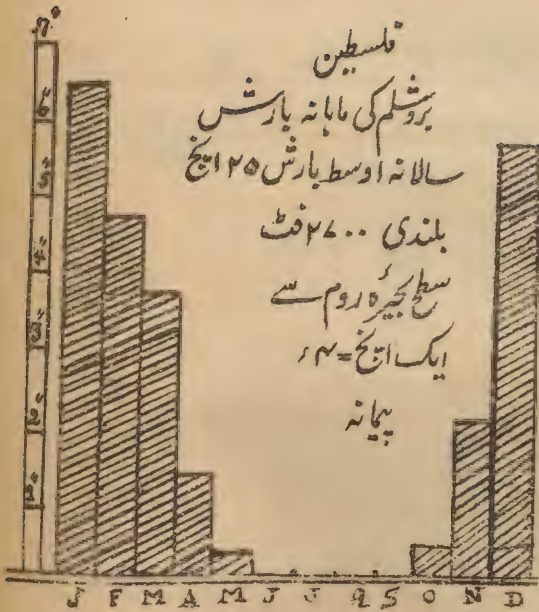 فلسطین
یروشلم کی ماہانہ بارش
سالانہ اوسط بارش ۲۵ انچ
بلندی ۲۷۰۰ فٹ
سطح بحیرۂ روم سے
ایک انچ = ۴ء
پیمانہ
7"
6"
5"
4"
3"
2"
1"
J F M A M J J A S O N D